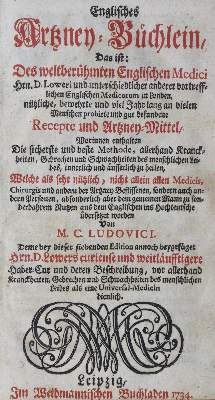 Englisches
Artzney-Büchlein,
Das ist:
Des weltberühmten Englischen Medici
Hrn. D. Loweri und unterschiedlicher anderer vortreff-
lichen Englischen Medicorum in Londen,
nützliche, bewehrte und viel Jahr lang an vielen
Menschen probirte und gut befundene
Recepte und Artzney-Mittel,
Worinnen enthalten
Die sicherste und beste Methode, allerhand Kranck-
heiten, Gebrechen und Schwachheiten des menschlichen Lei-
bes, innerlich und äusserlich zu heilen,
Welche als sehr nützlich, nicht allein allen Medicis,
Chirurgis und andern der Artzney Beflissenen, sondern auch an-
dern Personen, absonderlich aber dem gemeinen Mann zu son-
derbahrem Nutzen aus dem Englischen ins Hochteutsche
übersetzet worden
Von
M. C. LUDOVICI.
Deme bey dieser siebenden Edition annoch beygefüget
Hrn. D. Lowers curieuse und weitläufftigere
Haber-Cur und deren Beschreibung, vor allerhand
Kranckheiten, Gebrechen und Schwachheiten des menschlichen
Leibes als eine Universal-Medicin
dienlich.
Leipzig,
Im Weidmannischen Buchladen 1734.